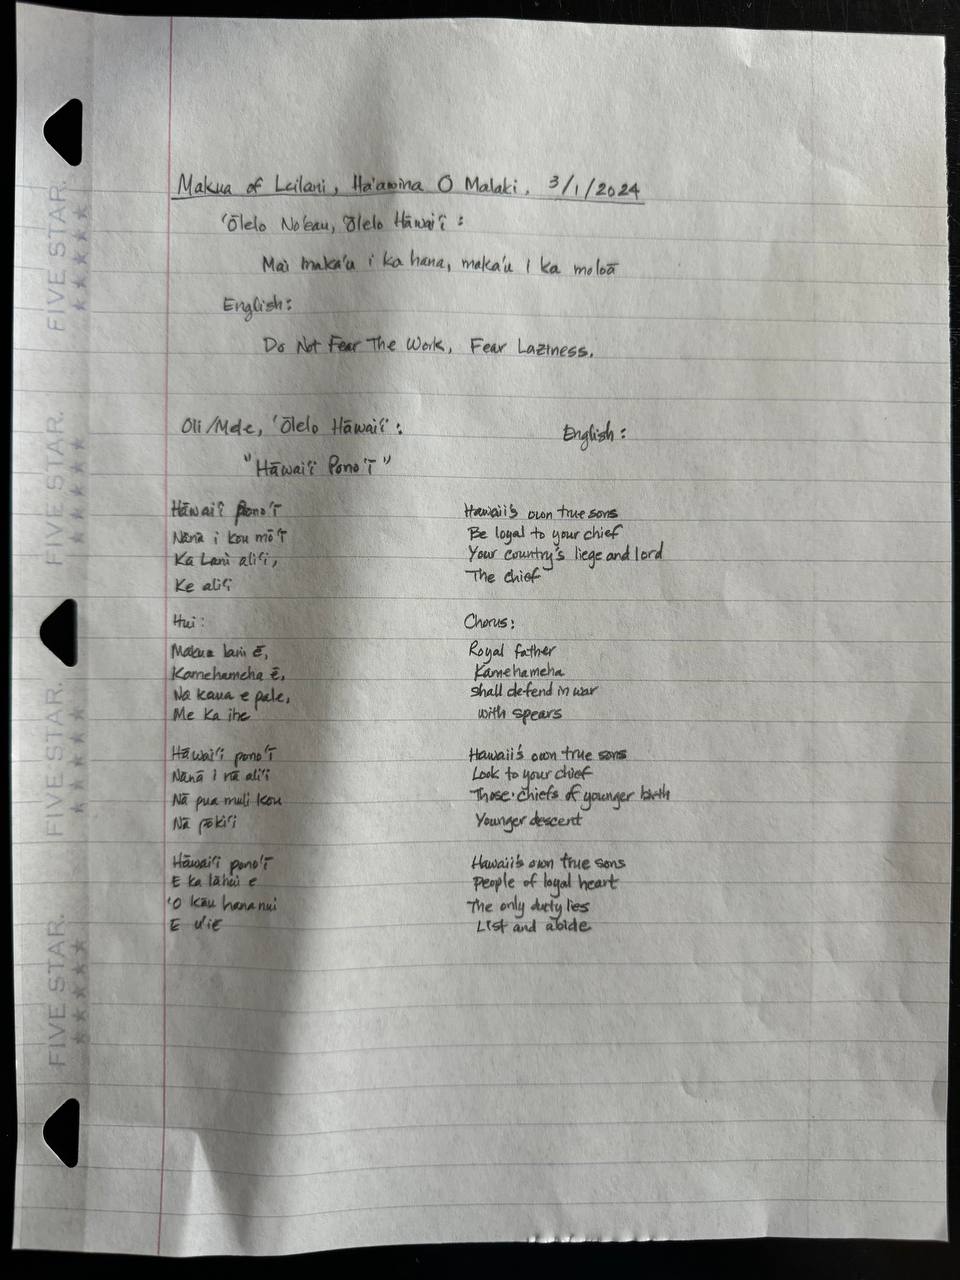 Makua of Leilani, Ha'awina O Malaki, 3/1/2024
'Ōlelo No'eau, 'Ōlelo Hāwai'i:
Mai maka'u i ka hana, maka'u i ka moloā
English:
Do Not Fear The Work, Fear Laziness.
Oli/Mele, 'Ōlelo Hāwai'i:
English:
"Hāwai'i Pono'ī"
Hāwai'i pono'ī
Nānā i kou mō'ī
Ka Lani ali'i,
Ke ali'i
Hawaii's own true sons
Be loyal to your chief
Your country's liege and lord
The chief
Hui:
Makua lani ē,
Kamehameha ē,
Na kaua e pale,
Me Ka ihe
Chorus:
Royal father
Kamehameha
shall defend in war
with spears
Hāwai'i pono'ī
Nānā i nā ali'i
Nā pua muli kou
Nā pōki'i
Hawaii's own true sons
Look to your chief
Those chiefs of younger birth
Younger descent
Hāwai'i pono'ī
E ka lāhui e
'O kāu hana nui
E u'iē
Hawaii's own true sons
People of loyal heart
The only duty lies
List and abide
FIVE STAR.
FIVE STAR.
FIVE STAR.
FIVE STAR.